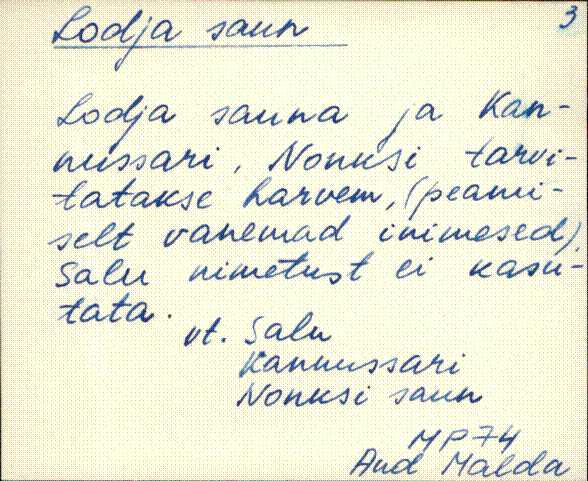 Lodja saun 3
Lodja sauna ja Kan-
nussari, Nonksi tarvi-
tatakse harvem, (peami-
selt vanemad inimesed).
Salu nimetust ei kasu-
tata.
vt. Salu
Kannussari
Nonksi saun
MP74
And Malda